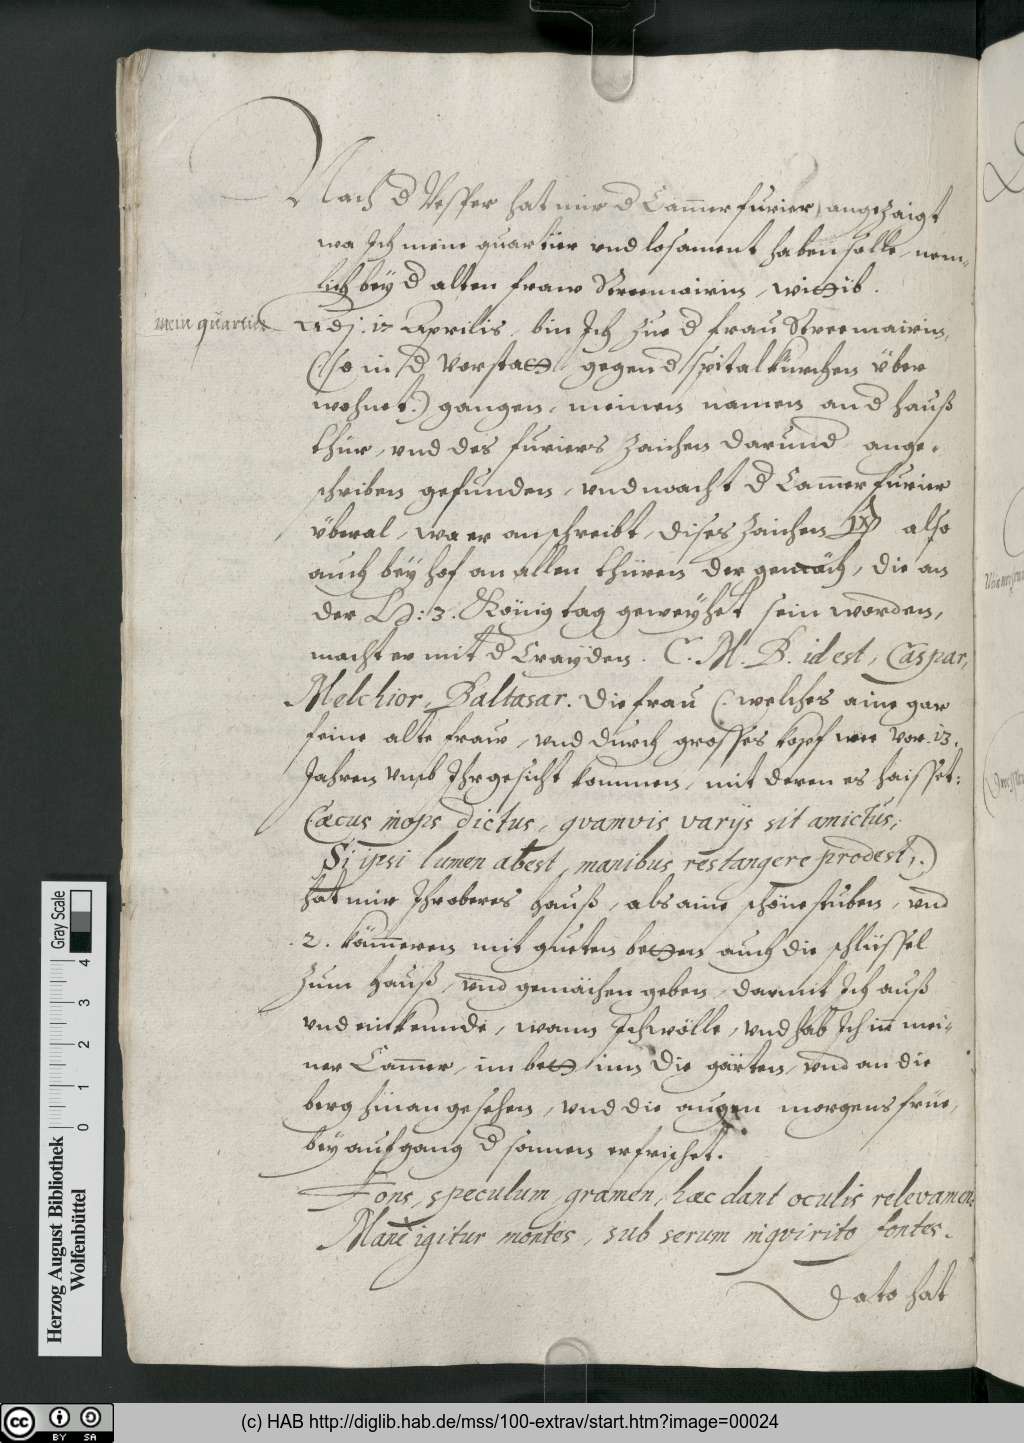 Nach d Vesper hat mir d Cammerfurier angezaigt
wa Ich meine quartier vnd losament haben solle, nem-
lich bey d alten fraw Streemairin, wittib.
mein quartier
Adj. 17 Aprilis, bin Ich zue d frau Streemairin,
(so in d Vorstatt gegen d spitalkürchen über
wohnet.) gangen, meinen namen an d hauß
thür, vnd des furiers zaichen darund ange-
schriben gefunden, vnd macht d Cammerfurier
überal, wa er anschreibt, dises zaichen also
auch bey hof an allen thüren der gemäch, die an
der H: 3. König tag geweyhet sein worden,
macht er mit d Crayden. C. M. B. id est, Caspar,
Melchior, Baltasar. Die frau (. welches aine gar
feine alte fraw, vnd durch grosses kopf wee vor. 13.
Jahren vmb Ihr gesicht kommen, mit deren es haisset:
Cæcus inops dictus, qvamvis varijs sit amictus,
Si ipsi lumen abest, manibus res tangere prodest,.)
hat mir Ihr oberes hauß, als aine schöne stuben, vnd
.2. kämmeren mit gueten betten auch die schlüssel
zum hauß, vnd gemächen geben, darmit Ich auß
vnd ein kennde, wann Ich wölle, vnd hab Ich in mei-
ner Cammer, im bett inn die gärten, vnd an die
berg hinan gesehen, vnd die augen morgens frue,
bey aufgang d sonnen erfrischet.
Fons, speculum, gramen, hæc dant oculis relevamen
Mane igitur montes, sub serum inqvirito fontes.
Dato hat
Herzog August Bibliothek
Wolfenbüttel
0 1 2 3 4
Gray Scale
cc BY SA
(c) HAB http://diglib.hab.de/mss/100-extrav/start.htm?image=00024